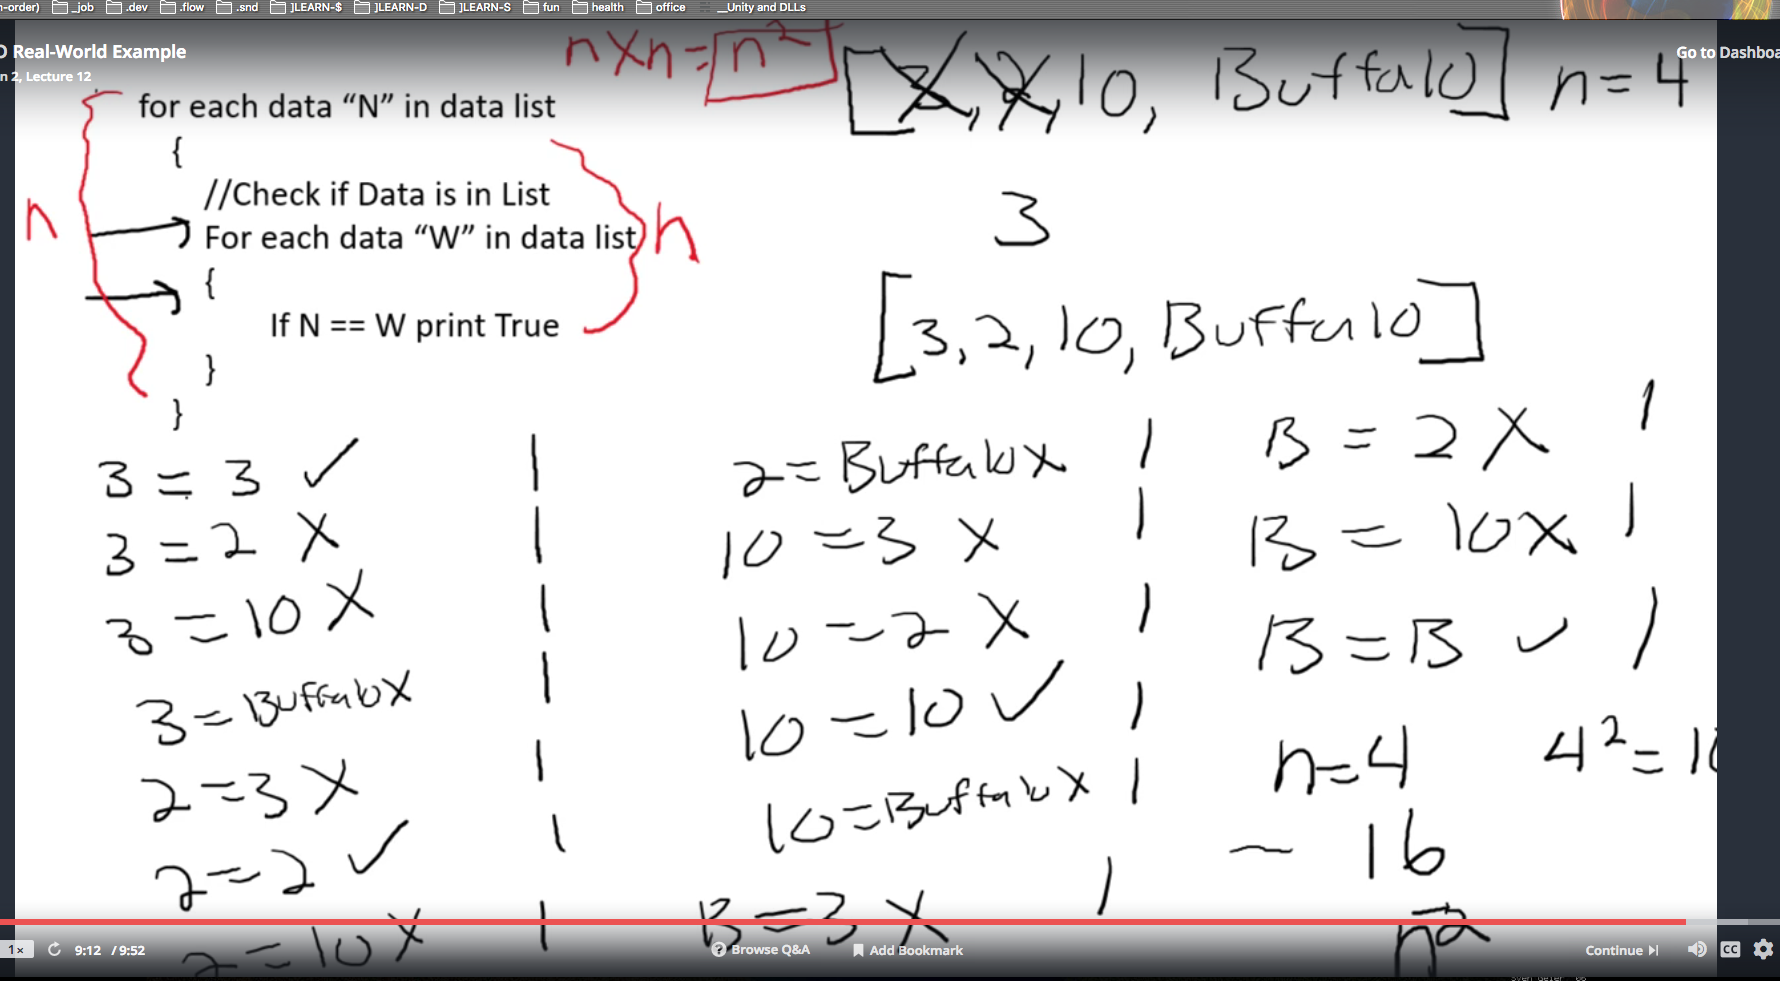 n-order) _job .dev .flow .snd ]LEARN-$ ]LEARN-D ]LEARN-S fun health office __Unity and DLLs
O Real-World Example
n 2, Lecture 12
Go to Dashboa
n x n = n²
[3, 2, 10, Buffalo] n=4
for each data “N” in data list
{
//Check if Data is in List
For each data “W” in data list
{
If N == W print True
}
}
n
n
3
[3, 2, 10, Buffalo]
3 = 3 ✓ |
3 = 2 X |
3 = 10 X |
3 = Buffalo X |
2 = 3 X |
2 = 2 ✓ |
2 = 10 X |
2 = Buffalo X |
10 = 3 X |
10 = 2 X |
10 = 10 ✓ |
10 = Buffalo X |
B = 3 X |
B = 2 X |
B = 10 X |
B = B ✓ |
n=4 4² = 1
~ 16
n²
1x 9:12 / 9:52 Browse Q&A Add Bookmark Continue CC